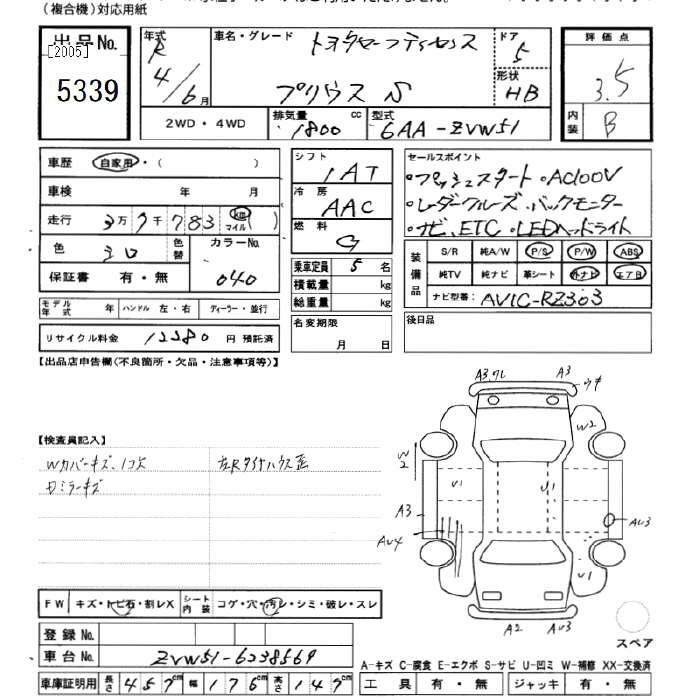 (複合機)対応用紙
出品No.
[2005]
5339
年式 R 4/6月
車名・グレード トヨタモーフティセンス プリウス S
ドア 5
形状 HB
評価点 3.5
内装 B
2WD・4WD
排気量 1800 cc
型式 6AA-ZVW51
車歴 自家用・( )
車検 年 月
走行 3万7千783 km マイル ( )
色 シロ 色替
カラーNo. 040
保証書 有・無
モデル年式 年 ハンドル 左・右 ディーラー・並行
リサイクル料金 12280 円 預託済
シフト IAT
冷房 AAC
燃料 G
乗車定員 5 名
積載量 kg
総重量 kg
名変期限 月 日
セールスポイント
・プッシュスタート ・AC100V
・レーダークルーズ、バックモニター
・ナビ、ETC ・LEDヘッドライト
装備品
S/R 純A/W P/S P/W ABS
純TV 純ナビ 革シート 外ナビ エアB
ナビ型番: AVIC-RZ303
後日品
【出品店申告欄(不良箇所・欠品・注意事項等)】
【検査員記入】
Wカバーキズ、
ミラーキズ
左Rタイヤハウス歪
A3 ワレ
A3
ウキ
W2
W2
U1
U1
A3
AU3
AU4
U1
A2
AU3
スペア
FW キズ・トビ石・割レX シート内装 コゲ・穴・汚レ・シミ・破レ・スレ
登録No.
車台No. ZVW51-6238569
車庫証明用 長さ 457cm 幅 176cm 高さ 147cm
A-キズ C-腐食 E-エクボ S-サビ U-凹ミ W-補修 XX-交換済
工具 有・無 ジャッキ 有・無